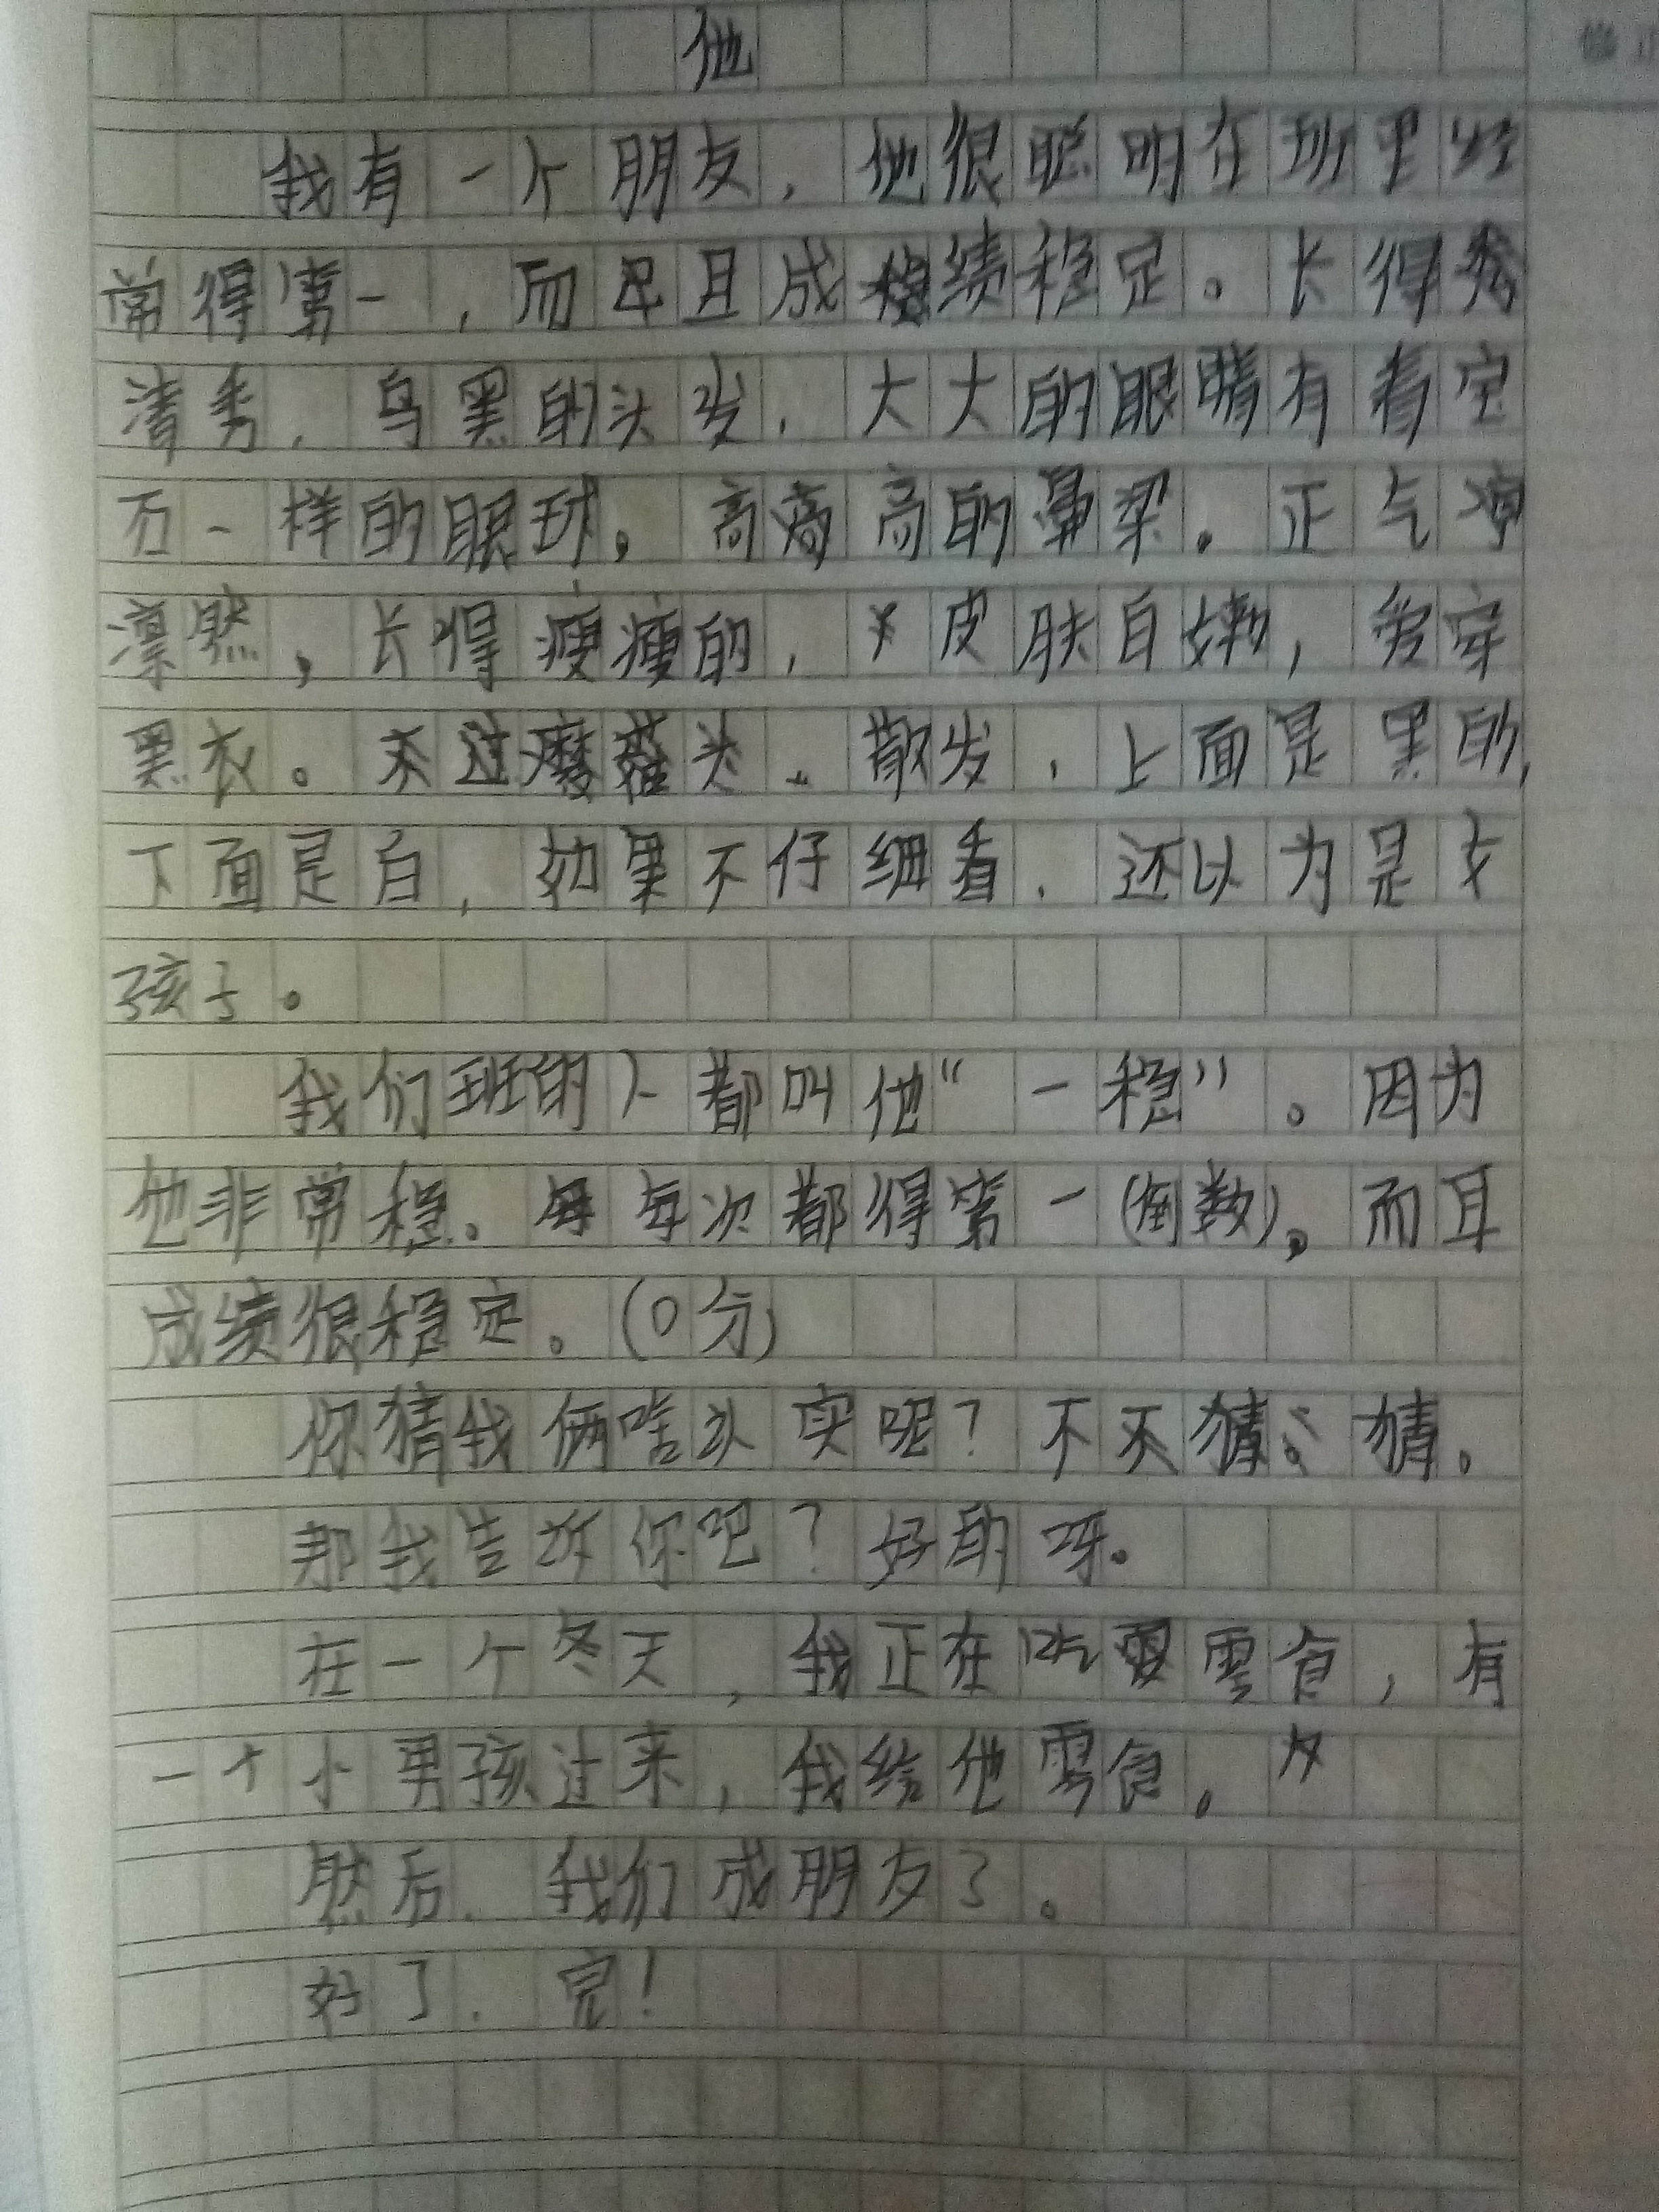 他
我有一个朋友，他很聪明在班里经
常得第一，而且成绩稳定。长得
清秀，乌黑的头发，大大的眼睛有着宝
石一样的眼球。高高的鼻梁。正气
凛然，长得瘦瘦的，皮肤白嫩，爱穿
黑衣。不过蘑菇头、散发，上面是黑的，
下面是白，如果不仔细看，还以为是女
孩子。
我们班的人都叫他“一稳”。因为
他非常稳。每次都得第一(倒数)。而且
成绩很稳定。(0分)
你猜我俩啥认实呢？不猜。猜。
那我告诉你吧？好的呀。
在一个冬天，我正在吃零食，有
一个小男孩过来，我给他零食。
然后，我们成朋友了。
好了，完！